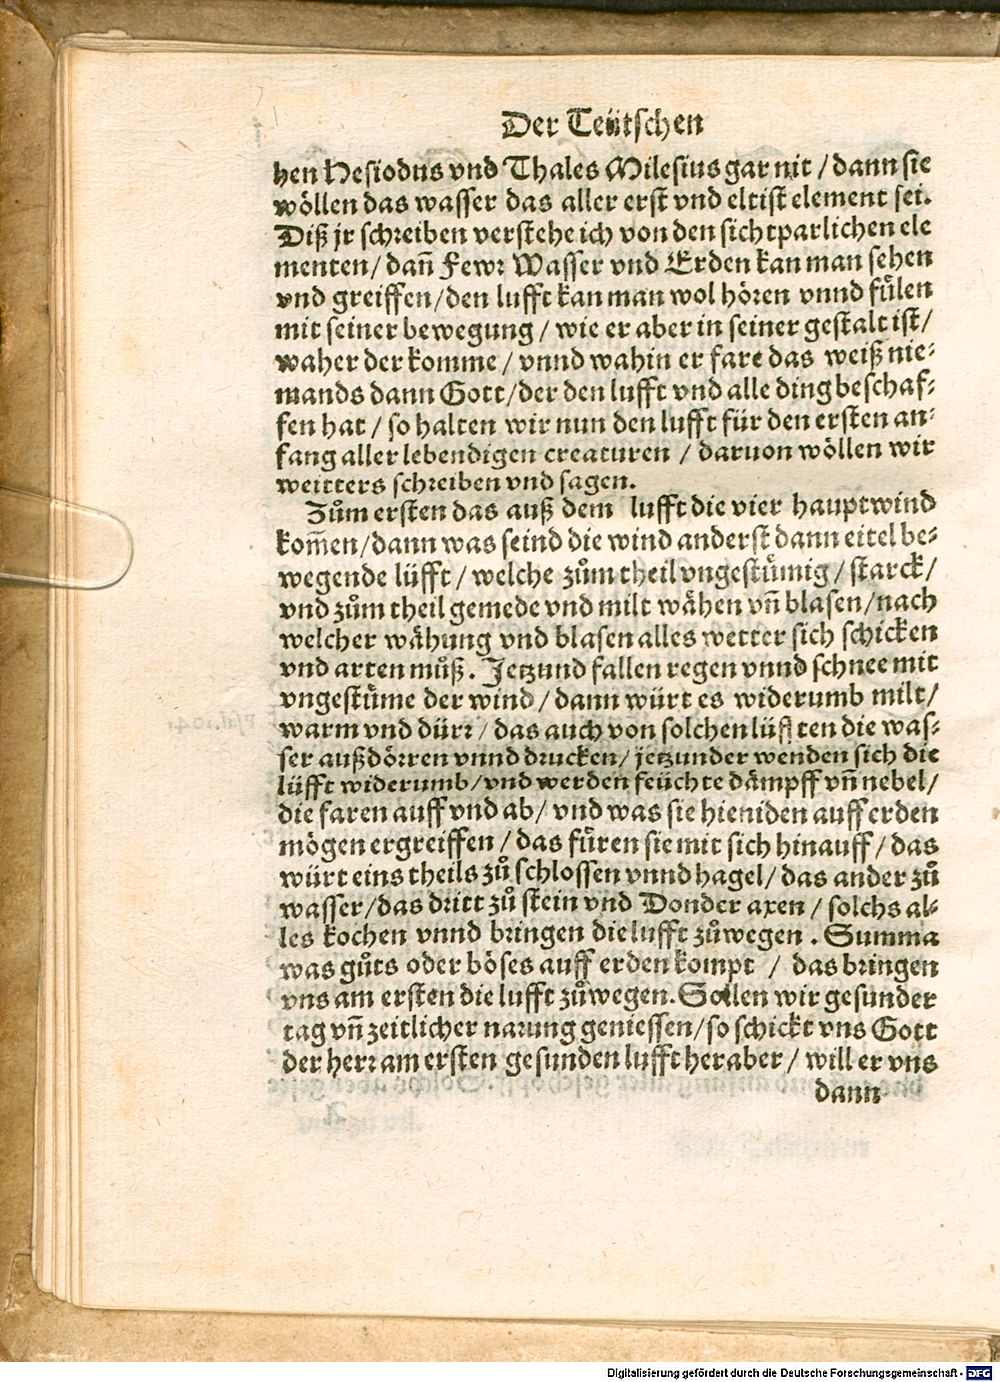 Der Teütschen
hen Hesiodus vnd Thales Milesius gar nit / dann sie
wöllen das wasser das aller erst vnd eltist element sei.
Diß jr schreiben verstehe ich von den sichtparlichen ele
menten / dañ Fewr Wasser vnd Erden kan man sehen
vnd greiffen / den lufft kan man wol hören vnnd fuͤlen
mit seiner bewegung / wie er aber in seiner gestalt ist /
waher der komme / vnnd wahin er fare das weiß nie⸗
mands dann Gott / der den lufft vnd alle ding beschaf⸗
fen hat / so halten wir nun den lufft für den ersten an⸗
fang aller lebendigen creaturen / daruon wöllen wir
weitters schreiben vnd sagen.
Zům ersten das auß dem lufft die vier hauptwind
kom̃en / dann was seind die wind anderst dann eitel be⸗
wegende lüfft / welche zům theil vngestuͤmig / starck /
vnd zům theil gemede vnd milt waͤhen vñ blasen / nach
welcher waͤhung vnd blasen alles wetter sich schicken
vnd arten můß. Jetzund fallen regen vnnd schnee mit
vngestuͤme der wind / dann würt es widerumb milt /
warm vnd dürr / das auch von solchen lüfften die was⸗
ser außdörren vnnd drucken / jetzunder wenden sich die
lüfft widerumb / vnd werden feüchte daͤmpff vñ nebel /
die faren auff vnd ab / vnd was sie hieniden auff erden
mögen ergreiffen / das fuͤren sie mit sich hinauff / das
würt eins theils zů schlossen vnnd hagel / das ander zů
wasser / das dritt zů stein vnd Donder axen / solchs al⸗
les kochen vnnd bringen die lufft zůwegen. Summa
was gůts oder böses auff erden kompt / das bringen
vns am ersten die lufft zůwegen. Sollen wir gesunder
tag vñ zeitlicher narung geniessen / so schickt vns Gott
der herr am ersten gesunden lufft heraber / will er vns
dann
Digitalisierung gefördert durch die Deutsche Forschungsgemeinschaft - DFG